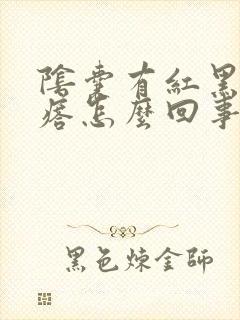 陰囊有紅黑
痞怎麼回事
黑色煉金師